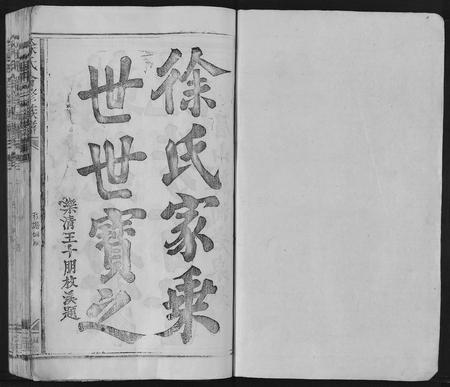 徐氏家乘
世世寶之
樂清王十朋敉溪題